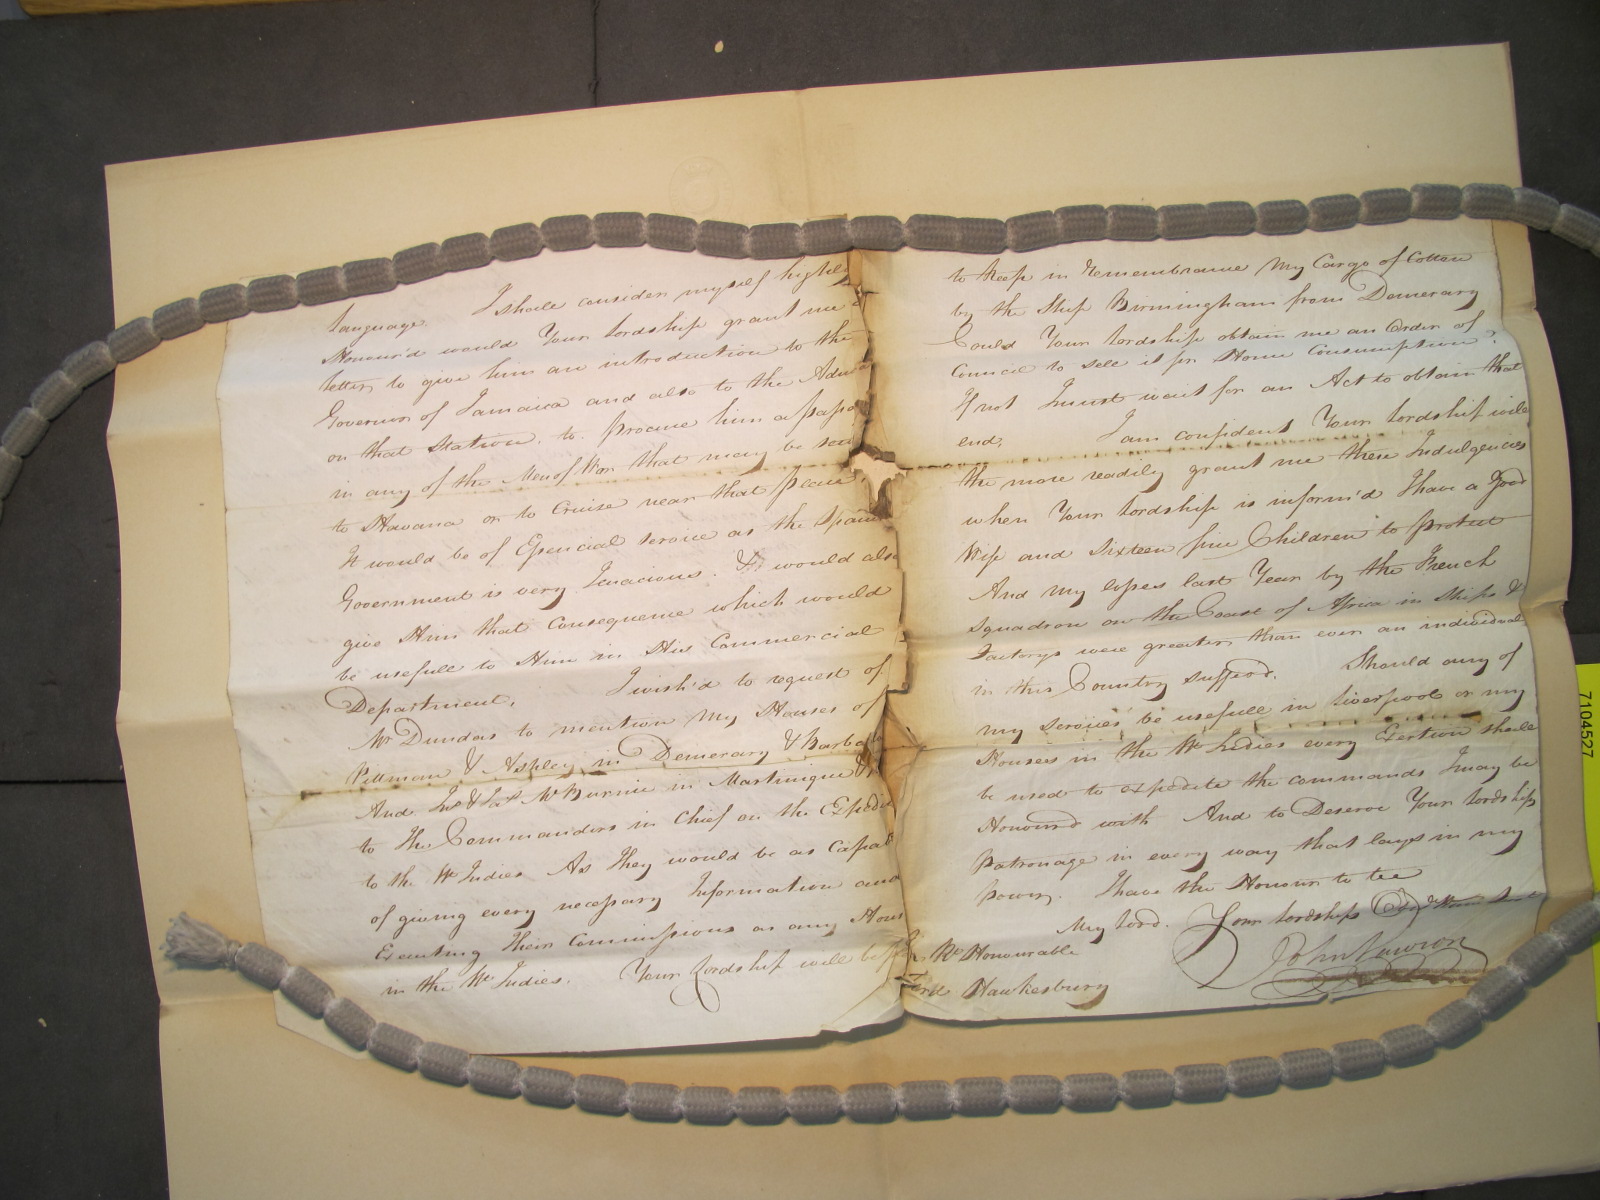 language. I shall consider myself highly
Honour'd would Your lordship grant me
letter, to give him an introduction to the
Governor of Jamaica and also to the Admi
on that Station. to procure him a passa
in any of the Men of War that may be
to Havana or to Cruise near that place
It would be of Essencial service as the Span
Government is very Tenacious. It would also
give Him that Consequence which would
be usefull to Him in His Commercial
Department. I wish'd to request of
Mr Dundas to mention My Houses of
Pittman & Ashley in Demerary & Barba
And Jno & McBurnie in Martinique
to The Commanders in Chief on the Expedi
to the Wt Indies As They would be as Capab
of giving every necessary Information and
Executing their Commissions as any Hous
in the Wt Indies. Your Lordship will be
to keep in remembrance My Cargo of Cotton
by the Ship Birmingham from Demerary
Could Your lordship obtain me an Order of
Council to sell it for Home Consumption?
If not I must wait for an Act to obtain that
end, I am confident Your lordship will
the more readily grant me these Indulgencies
when Your lordship is inform'd I have a Good
Wife and Sixteen fine Children to protect
And My losses last Year by the French
Squadron on the Coast of Africa in Ships &
Factorys were greater than ever an individual
in this Country sufferd. Should any of
my services be usefull in Liverpool or my
Houses in the Wt Indies every Exertion shall
be used to expedite the commands I may be
Honourd with And to Deserve Your lordships
Patronage in every way that lays in my
power. I have the Honour to be
My Lord. Your lordships
Rt Honourable
Lord Hawkesbury
John Dawson
7104527